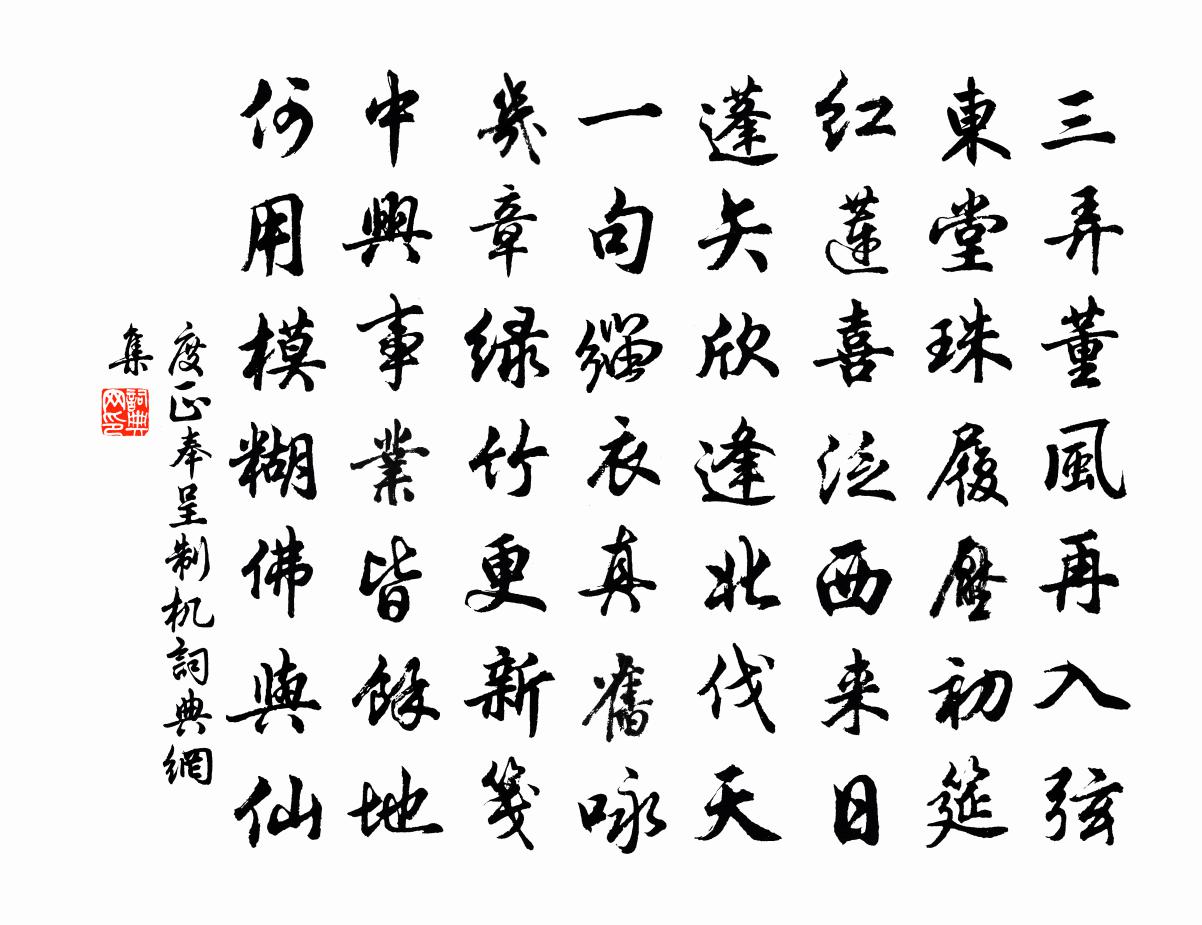 三弄董風再入弦
東堂珠履壓初筵
紅蓮喜泛西来日
蓬矢欣逢北伐天
一句緇衣真舊咏
幾章緑竹更新箋
中興事業皆餘地
何用模糊佛與仙
度正奉呈制机詞典網
集
詞典網印